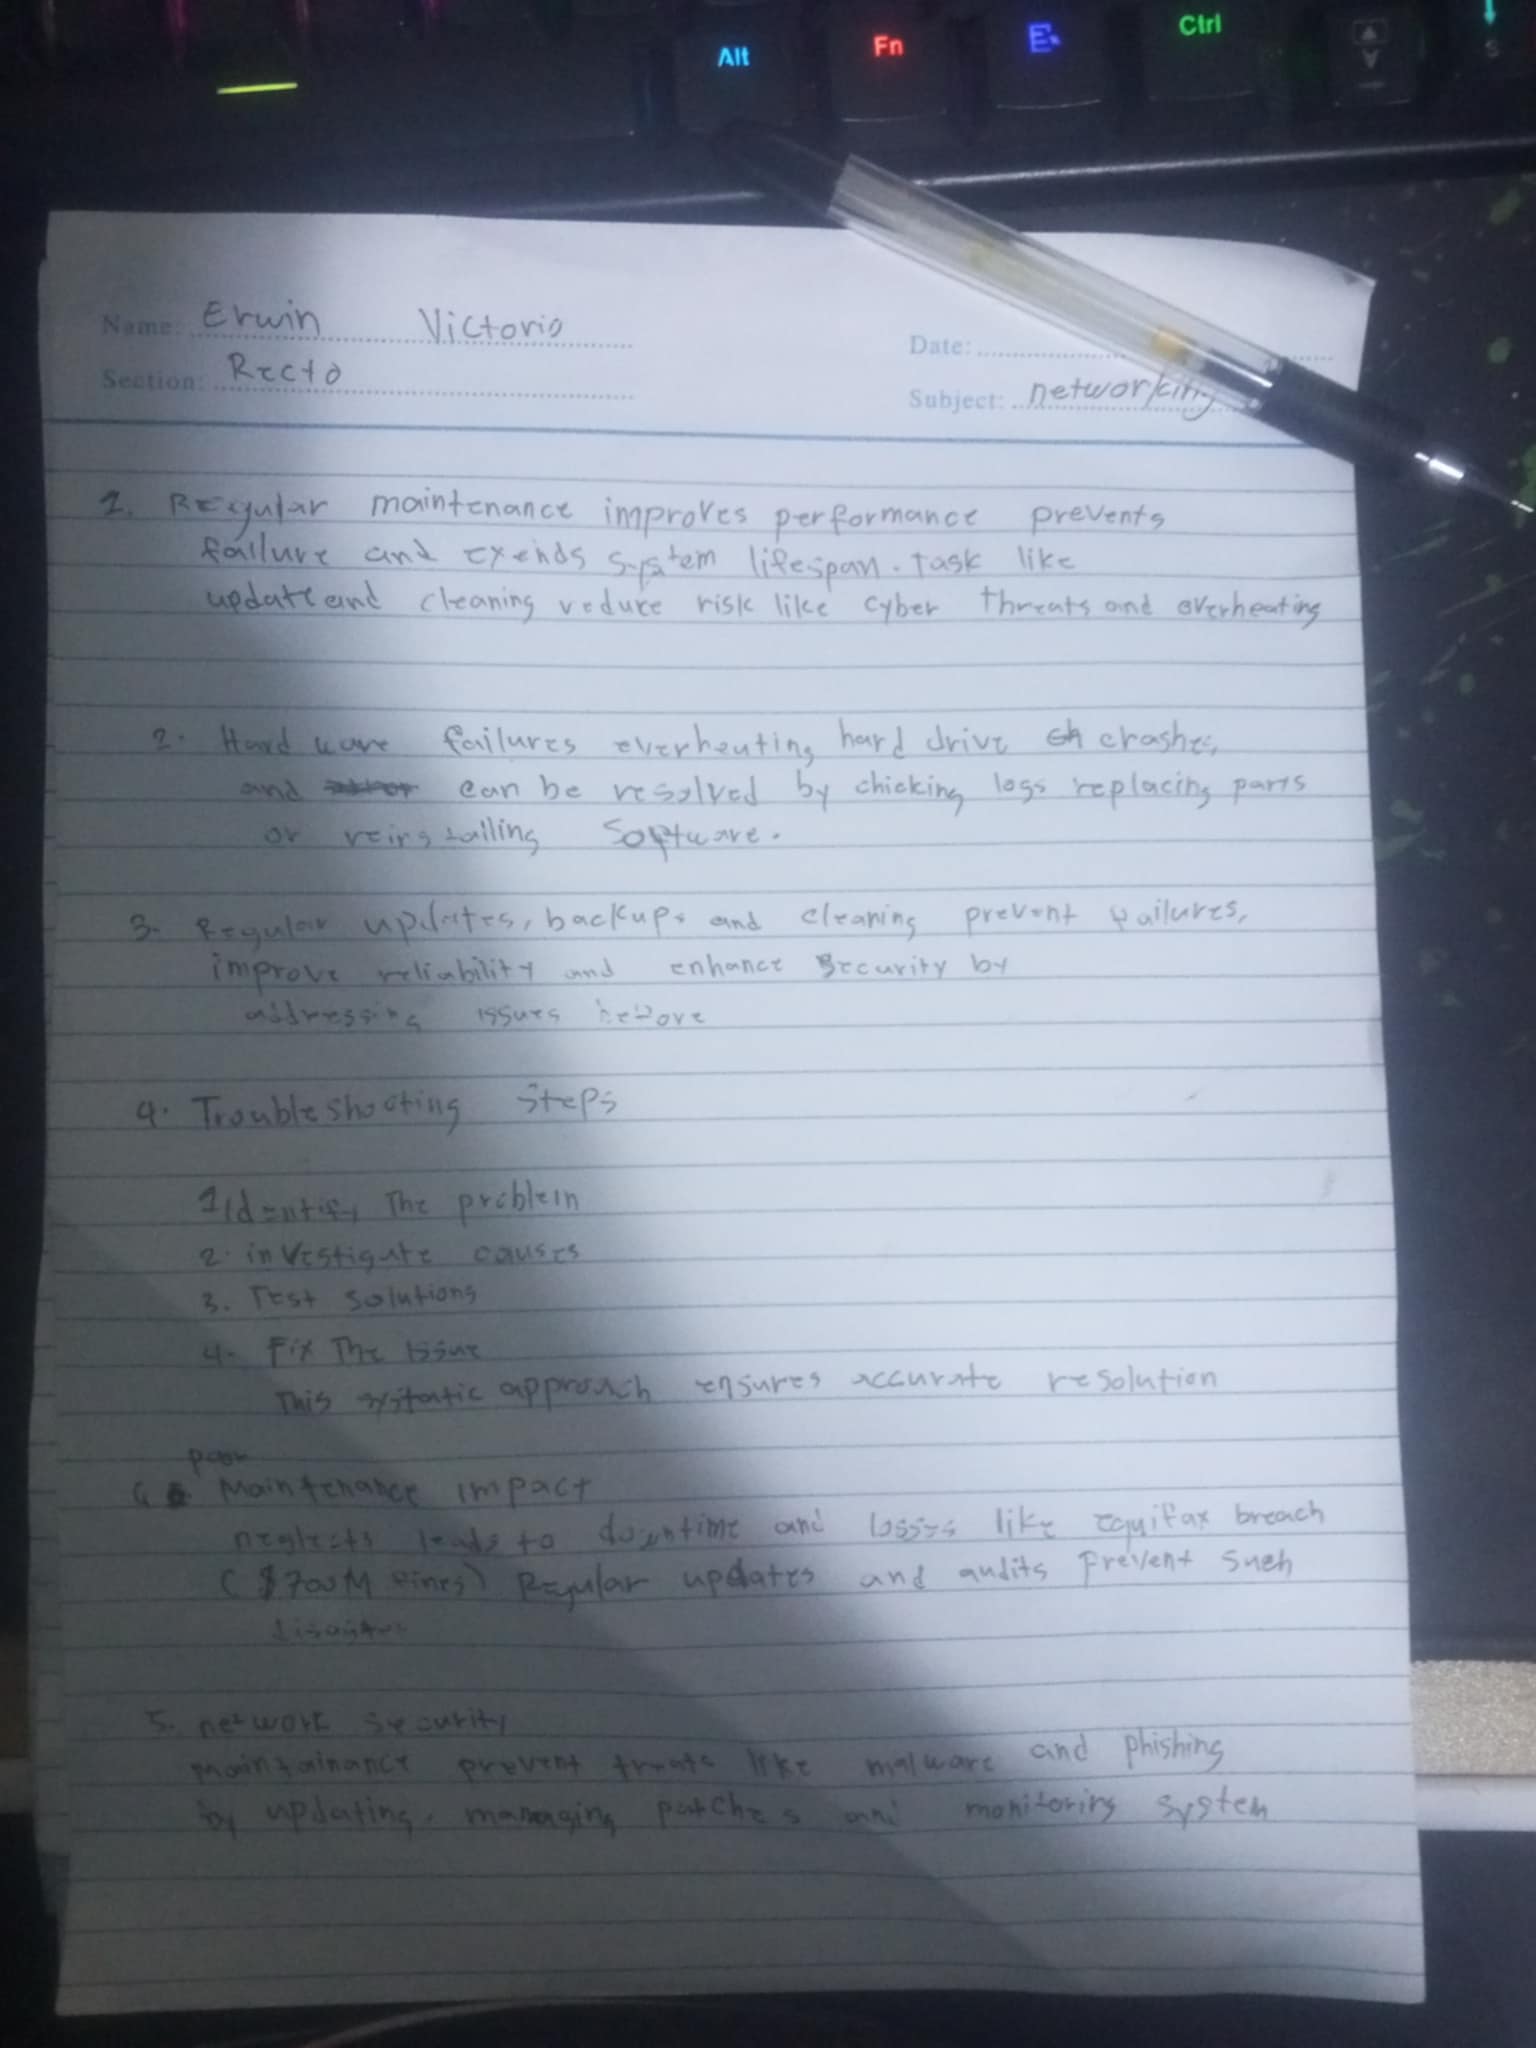 Alt Fn Ctrl
S
Name: Erwin Victorio
Date:
Section: Recto
Subject: networking
1. Regular maintenance improves performance prevents
failure and exends system lifespan. Task like
update and cleaning reduce risk like cyber threats and overheating
2. Hardware failures overheating hard drive crashes,
and can be resolved by chicking logs replacing parts
or reinstalling software.
3. Regular updates, backups and cleaning prevent failures,
improve reliability and enhance security by
addressing issues before
4. Troubleshooting Steps
1 Identify The problem
2. investigate causes
3. Test solutions
4. Fix The issue
This approach ensures accurate resolution
poor
Maintenance impact
neglects leads to downtime and losses like equifax breach
($700M fines) Regular updates and audits prevent such
5. network security
maintainance prevent treats like malware and phishing
by updating, managing patches and monitoring system